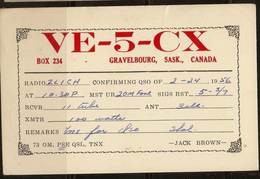 VE-5-CX
BOX 234 GRAVELBOURG, SASK., CANADA
RADIO ZL1CH CONFIRMING QSO OF 2-24 1936
AT 10:30P MST UR 20M Fone SIGS RST 5-
RCVR 11 tube ANT
XMTR 100 watts
REMARKS for
73 OM, PSE QSL, TNX —JACK BROWN—